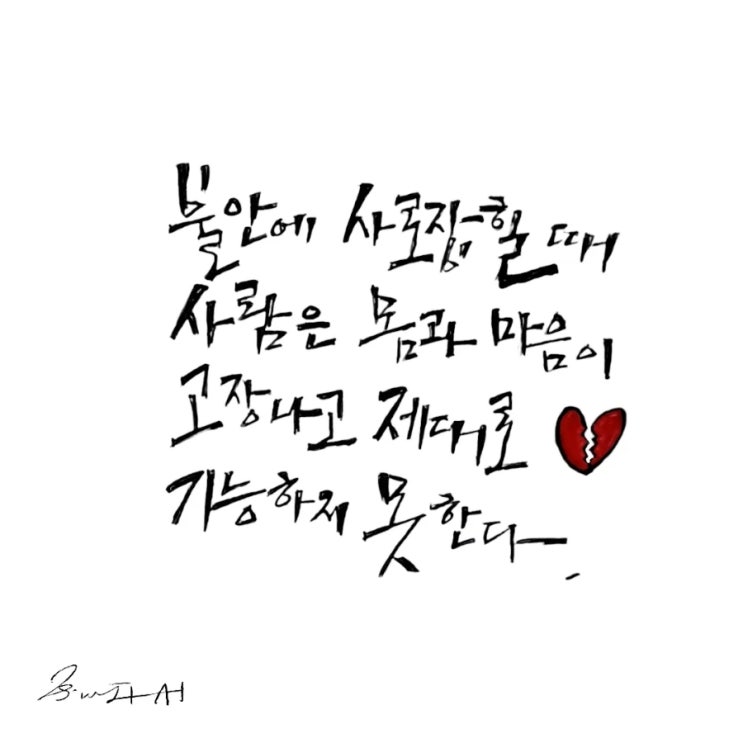 불안에 사로잡힐 때
사람은 몸과 마음이
고장나고 제대로
기능하지 못한다.